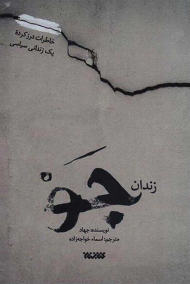 خاطرات درز کردهٔ
یک زندانی سیاسی
زندان
جَو
نویسنده: جهاد
مترجم: اسماء خواجه‌زاده